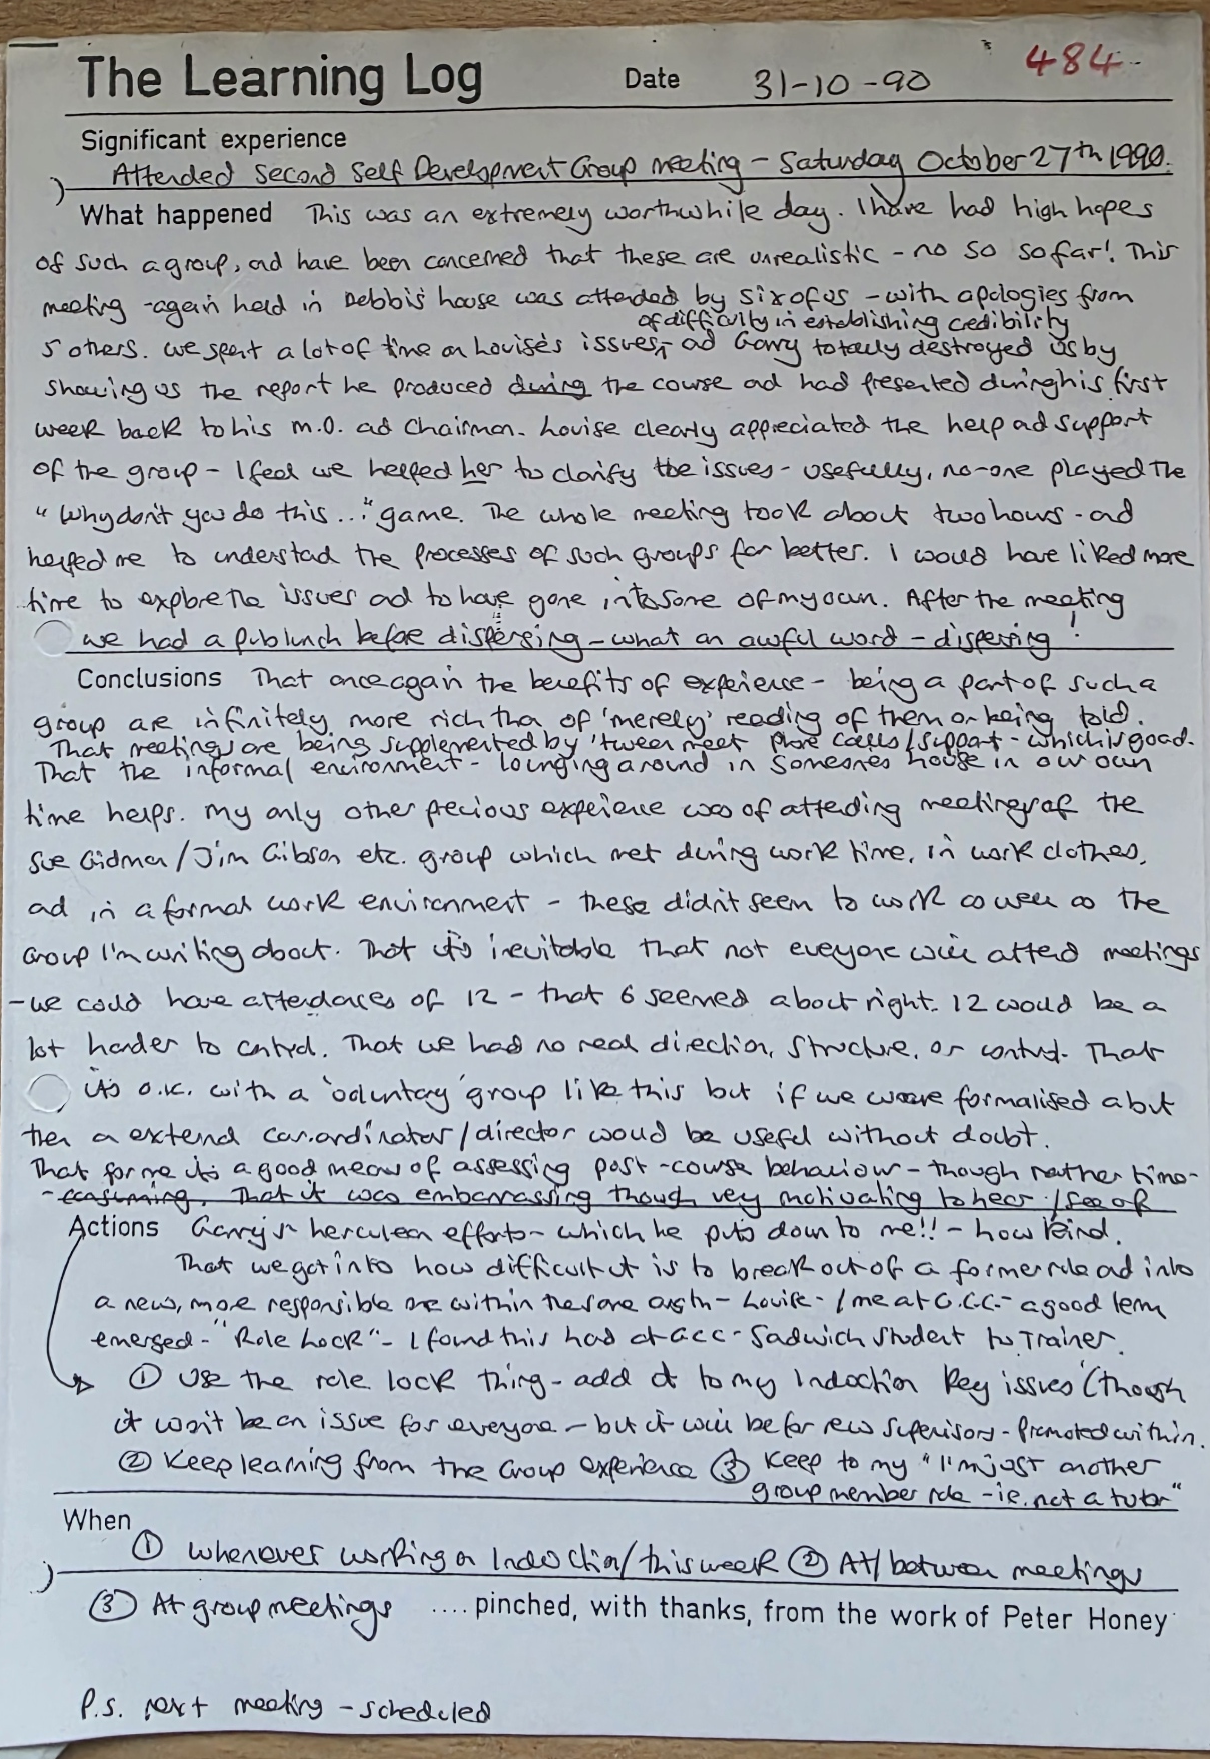 The Learning Log Date 31-10-90 484
Significant experience
Attended Second Self Development Group meeting - Saturday October 27th 1990.
What happened This was an extremely worthwhile day. I have had high hopes
of such a group, and have been concerned that these are unrealistic - no so so far! This
meeting - again held in Debbi's house was attended by six of us - with apologies from
of difficulty in establishing credibility
5 others. We spent a lot of time on Louise's issues, - ad Garry totally destroyed us by
showing us the report he produced during the course ad had presented during his first
week back to his M.D. ad Chairman. Louise clearly appreciated the help ad support
of the group - I feel we helped her to clarify the issues - usefully, no-one played the
"Why don't you do this..." game. The whole meeting took about two hours - ad
helped me to understad the processes of such groups far better. I would have liked more
time to explore the issues ad to have gone into some of my own. After the meeting
we had a pub lunch before dispersing - what an awful word - dispersing!
Conclusions That once again the benefits of experience - being a part of such a
group are infinitely more rich than of 'merely' reading of them or being told.
That meetings are being supplemented by 'tween meet phone calls/support - which is good.
That the informal environment - lounging around in someones house in our own
time helps. My only other precious experience was of attending meetings of the
Sue Gidman/Jim Gibson etc. group which met during work time, in work clothes,
ad in a formal work environment - these didn't seem to work as well as the
Group I'm writing about. That it's inevitable that not everyone will attend meetings
- we could have attendances of 12 - that 6 seemed about right. 12 would be a
lot harder to control. That we had no real direction, structure, or control. That
it's o.k. with a 'voluntary' group like this but if we were formalised about
then a extend co-ordinator/director would be useful without doubt.
That for me it's a good means of assessing post-course behaviour - though rather time-
- consuming. That it was embarrassing though very motivating to hear/see of
Actions Garry's herculean efforts - which he puts down to me!! - how kind.
That we got into how difficult it is to break out of a former role ad into
a new, more responsible one within the same orgtn - Louise - / me at G.C.C. - a good term
emerged - "Role Lock" - I found this had at GCC - Sadwich student to Trainer.
① Use the role lock thing - add it to my Induction key issues (though
it won't be an issue for everyone - but it will be for new supervisors - promoted within.
② Keep learning from the Group experience ③ Keep to my "I'm just another
group member role - ie. not a tutor"
When
① Whenever working on Induction/this week ② At/between meetings
③ At group meetings .... pinched, with thanks, from the work of Peter Honey
P.S. next meeting - scheduled